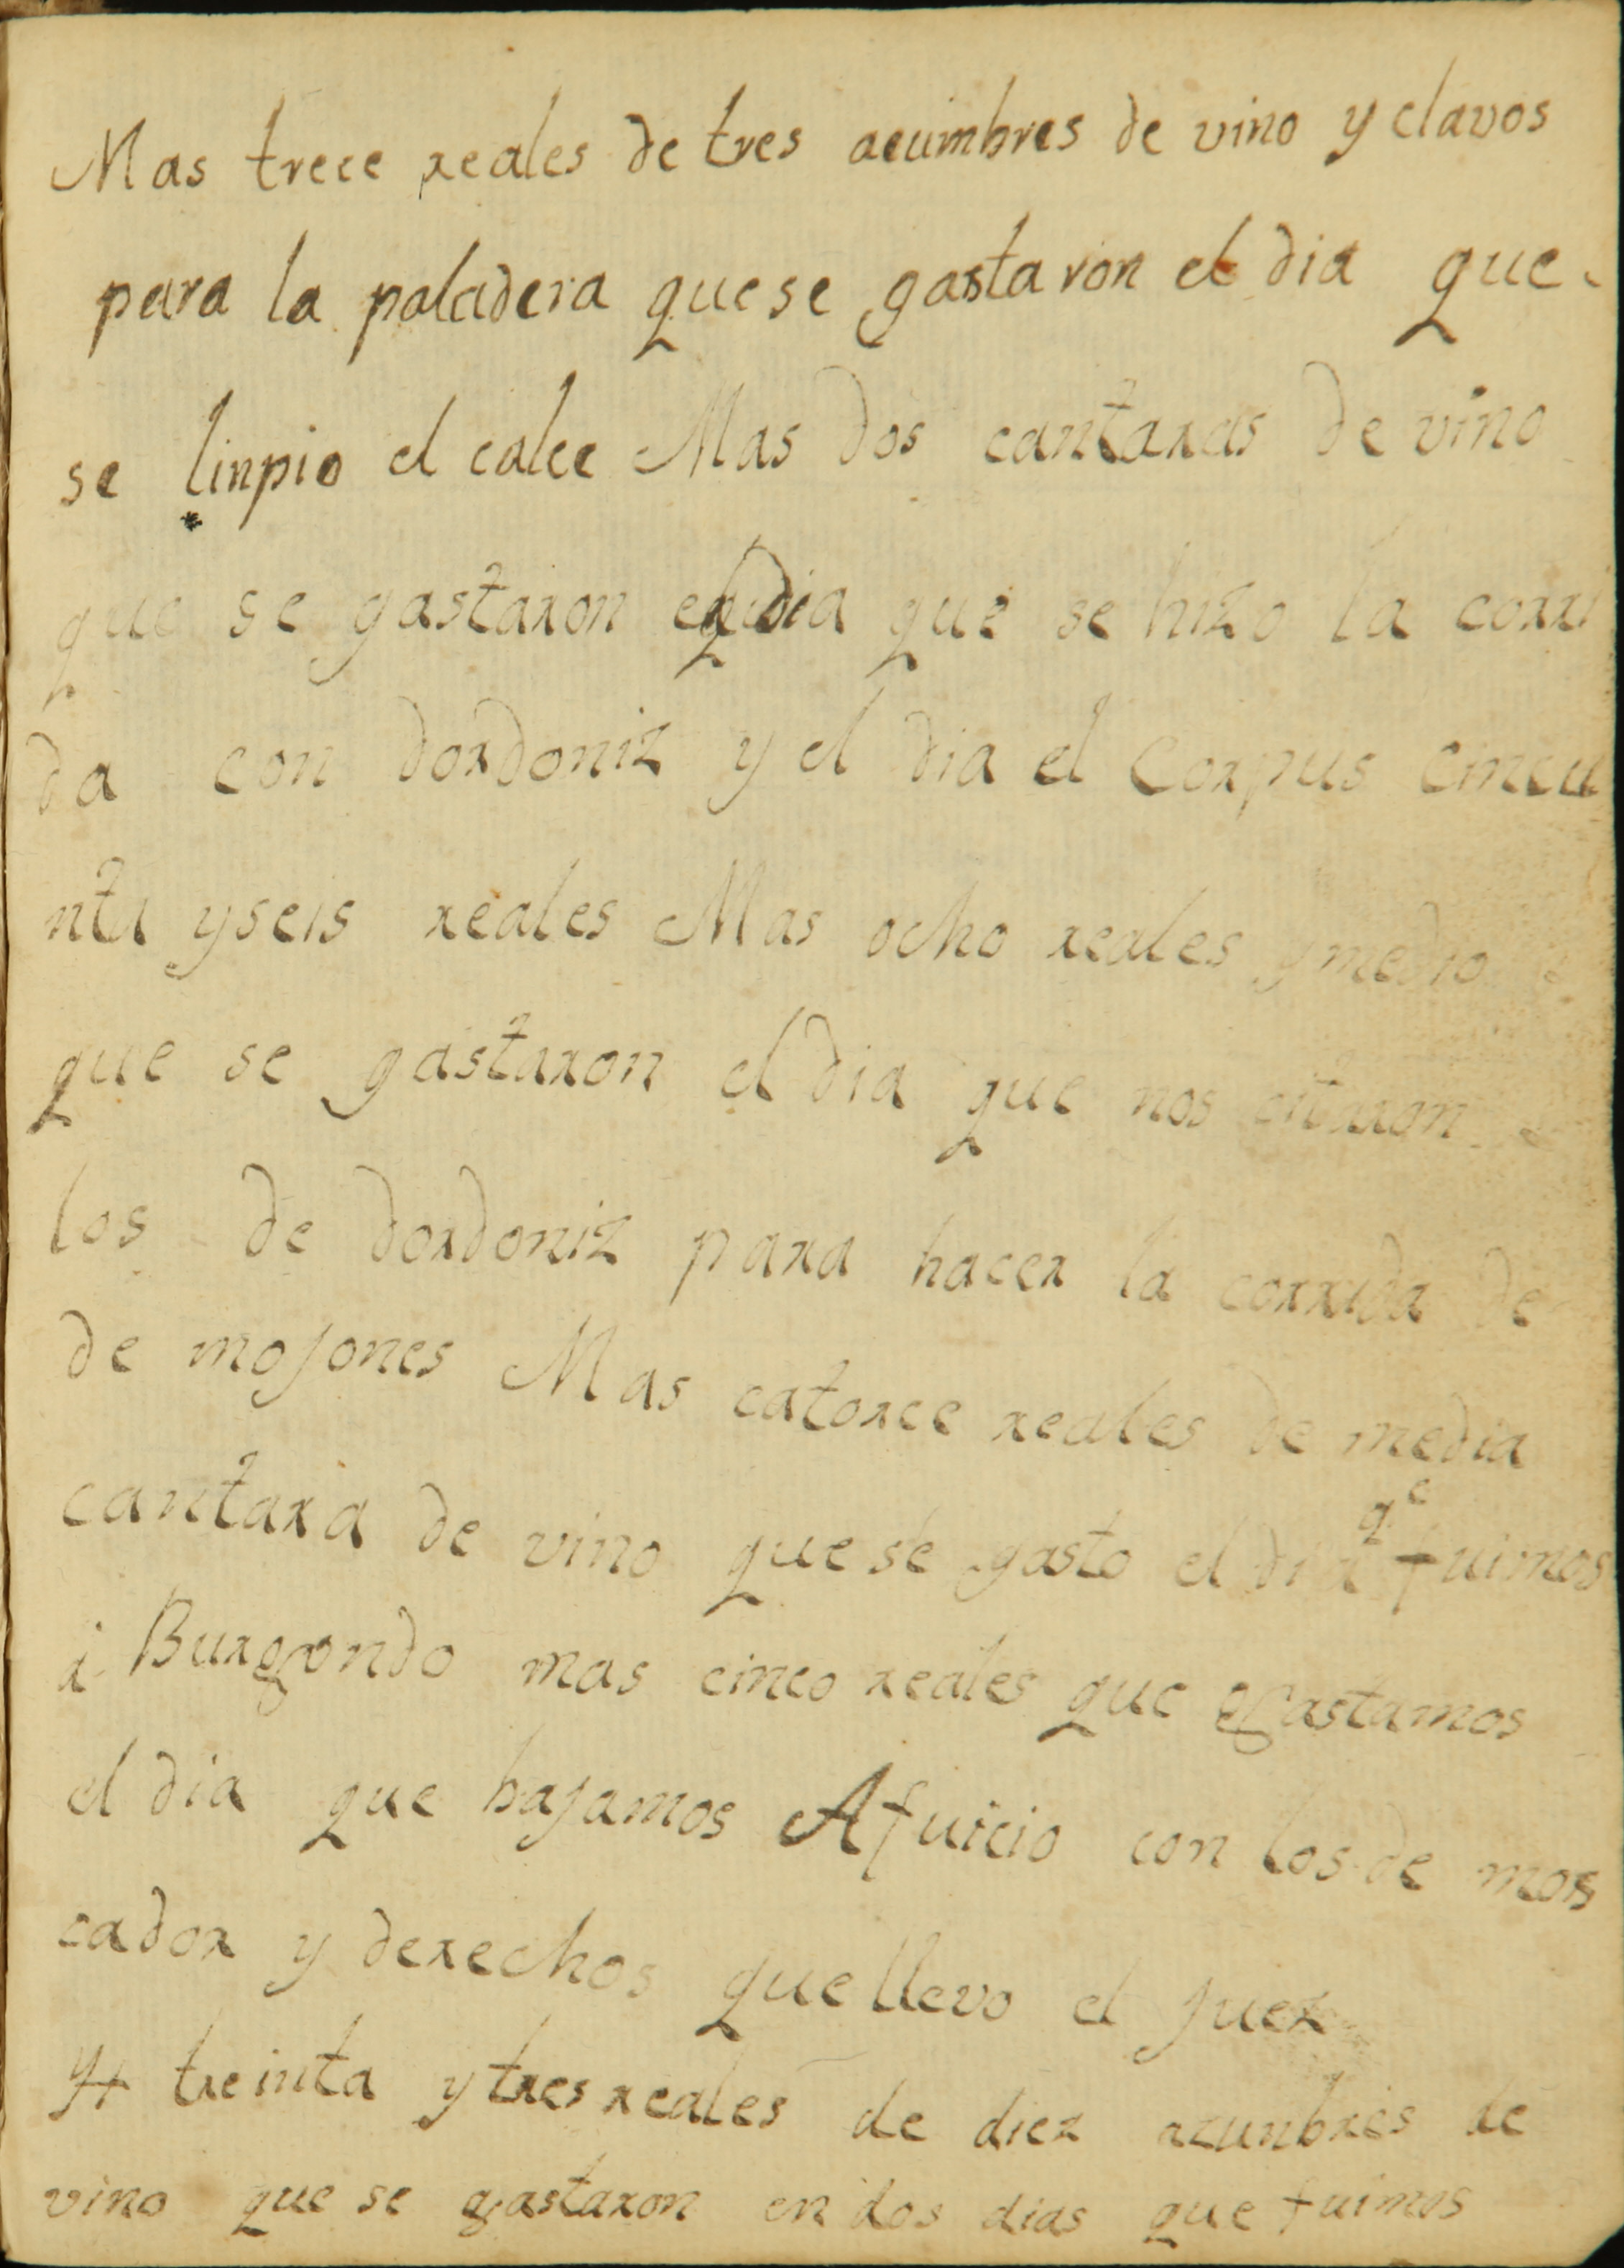 Mas trece reales de tres acumbres de vino y clavos
para la paladera que se gastaron el dia que
se linpio el calce Mas dos cantaras de vino
que se gastaron el dia que se hizo la corri
da con dordoniz y el dia el Corpus cincu
nta y seis reales Mas ocho reales y medio
que se gastaron el dia que nos citaron
los de dordoniz para hacer la corrida de
de mojones Mas catorce reales de media
cantara de vino que se gasto el dia qe fuimos
a Burgondo mas cinco reales que gastamos
el dia que bajamos A fuicio con los de mos
cador y derechos que llevo el juez
treinta y tres reales de diez azunbres de
vino que se gastaron en dos dias que fuimos